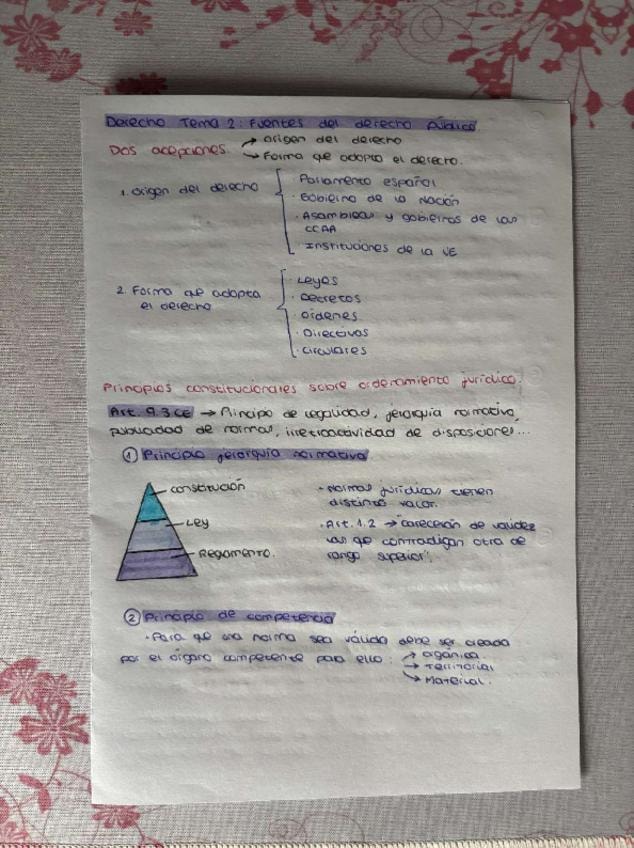 Derecho Tema 2: Fuentes del derecho público
Dos acepciones → origen del derecho
→ Forma que adopta el derecho.
1. Origen del derecho
Parlamento español
· Gobierno de la Nación
· Asambleas y gobiernos de las
CCAA
· Instituciones de la UE
2. Forma que adopta
el derecho
· Leyes
· Decretos
· Órdenes
· Directivas
· Circulares
Principios constitucionales sobre ordenamiento jurídico.
Art. 9.3 CE → Principo de legalidad, jerarquía normativa,
publicidad de normas, irretroactividad de disposiciones...
① Principio jerarquía normativa
Constitución
Ley
Reglamento.
· Normas jurídicas tienen
distinto valor.
· Art. 1.2 → carecerán de validez
las que contradigan otra de
rango superior".
② Principio de competencia
· Para que una norma sea válida debe ser creada
por el órgano competente para ello: → orgánica.
→ Territorial
→ Material.